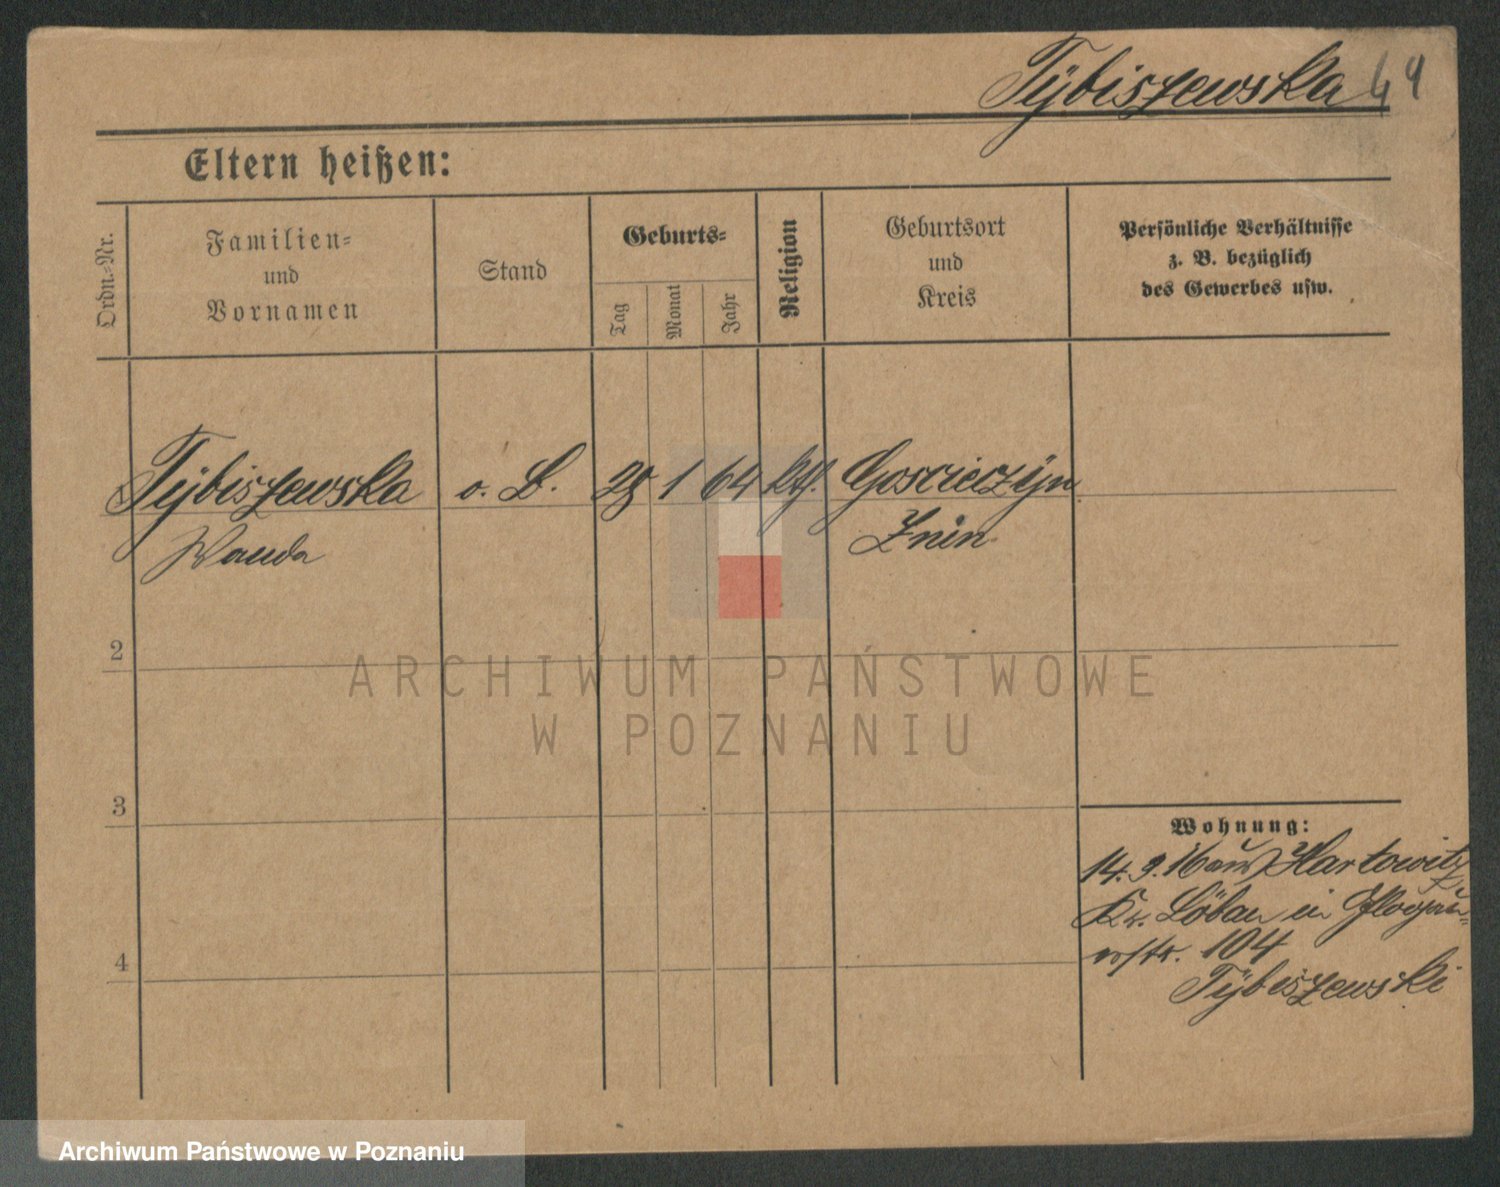 Tÿbiszewska 44
Eltern heißen:
Ordn.-Nr.
Familien-
und
Vornamen
Stand
Geburts-
Tag
Monat
Jahr
Religion
Geburtsort
und
Kreis
Persönliche Verhältnisse
z. B. bezüglich
des Gewerbes usw.
Tÿbiszewska o. B. 28 1 64 kth. Goscieczÿn
Wanda Znin
2
3
4
Wohnung:
14. 9. 16 aus Hartowitz
Kr. Löbau in Glogau-
erstr. 104
Tÿbiszewski
ARCHIWUM PAŃSTWOWE
W POZNANIU
Archiwum Państwowe w Poznaniu